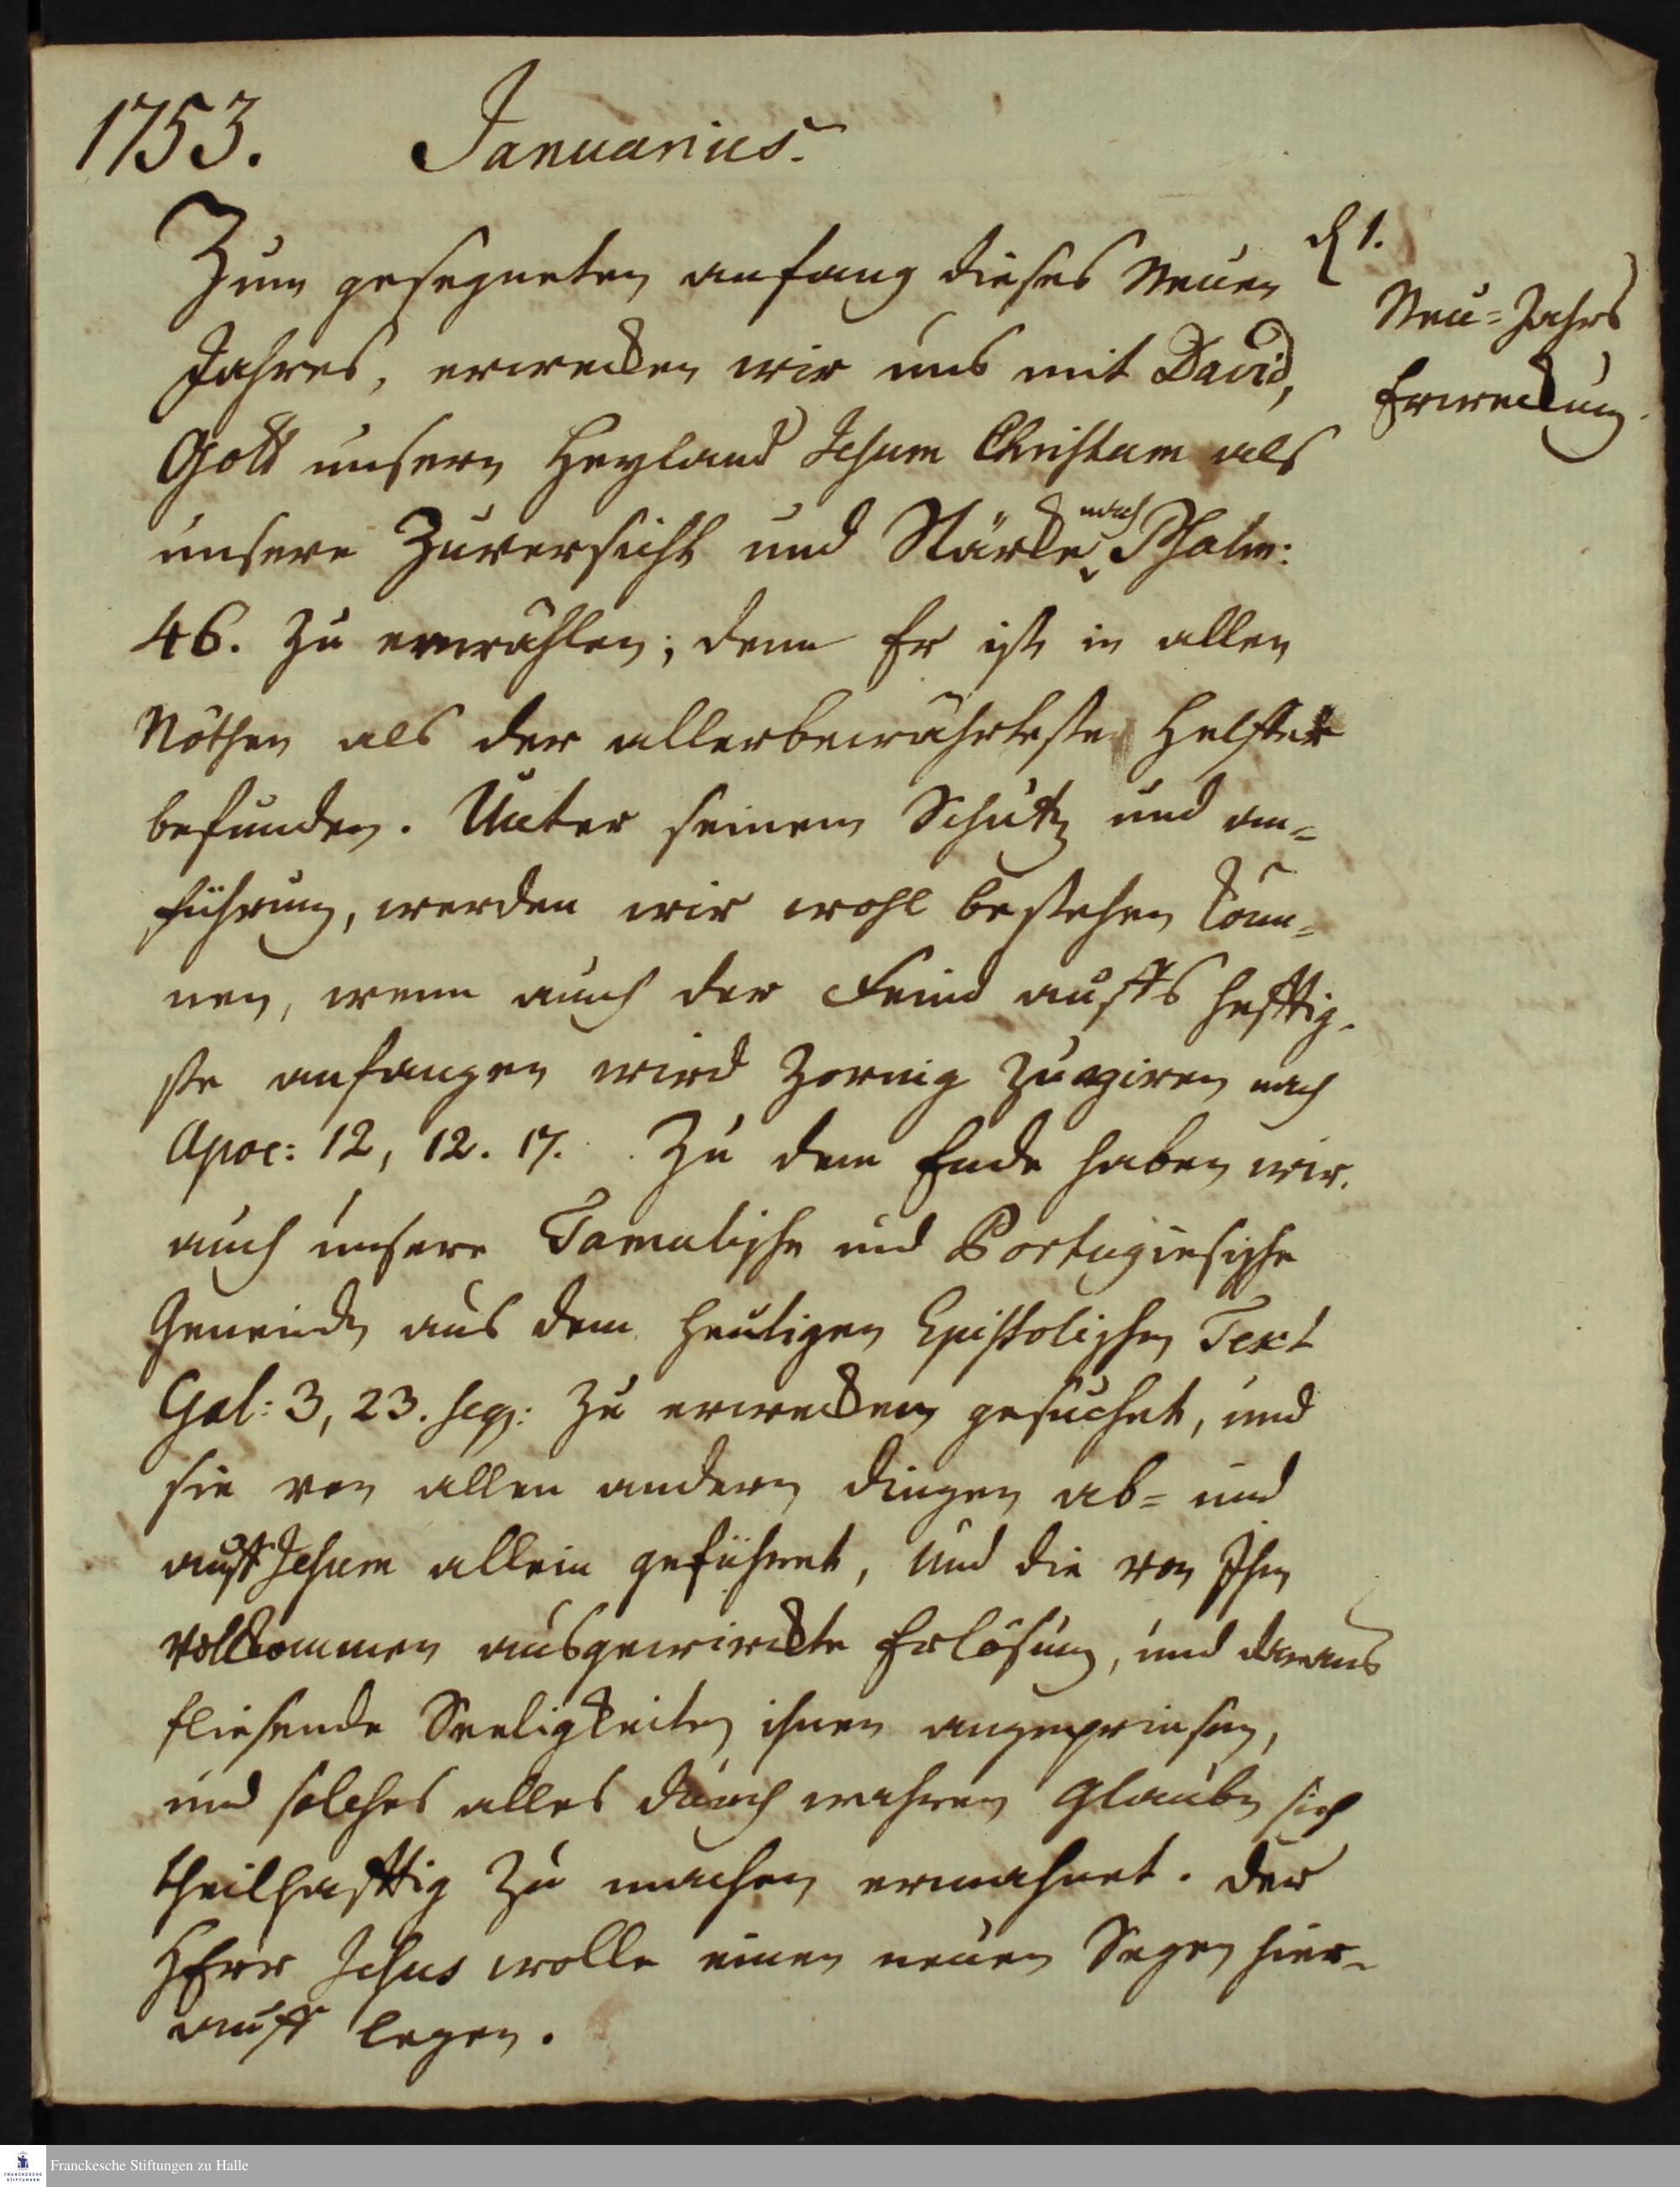 1753. Januarius.
Zum gesegneten anfang dieses Neuen
Jahres, erwecken wir uns mit David,
Gott unsern Heyland Jesum Christum als
unsere Zuversicht und Stärcke nach Psalm:
46. zu erwählen; denn Er ist in allen
Nöthen als der allerbewährteste Helffer
befunden. Unter seinem Schutz und an=
führung, werden wir wohl bestehen kön=
nen, wenn auch der Feind auffs hefftig-
ste anfangen wird zornig zu agiren nach
Apoc: 12, 12. 17. Zu dem Ende haben wir
auch unsere Tamulische und Portugiesische
Gemeinde aus dem heutigen Epistolischen Text
Gal: 3, 23. seqq: zu erwecken gesuchet, und
sie von allen andern dingen ab= und
auff Jesum allein geführet, und die von Ihm
vollkommen ausgewirckte Erlösung, und daraus
fliesende Seeligkeiten ihnen angepriesen,
und solches alles durch wahren Glauben sich
theilhafftig zu machen ermahnet. Der
HErr Jesus wolle einen neuen Segen hier-
auff legen.
d 1.
Neu=Jahrs
Erweckung.
Franckesche Stiftungen zu Halle
FRANCKESCHE
STIFTUNGEN